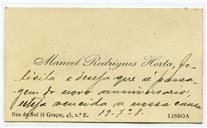 Manoel Rodrigues Horta, fe-
licita e deseja que á passa-
gem do novo anniversario,
esteja vencida a nossa causa
19-7-8.
Rua do Sol (á Graça), 23, 2.º E. LISBOA